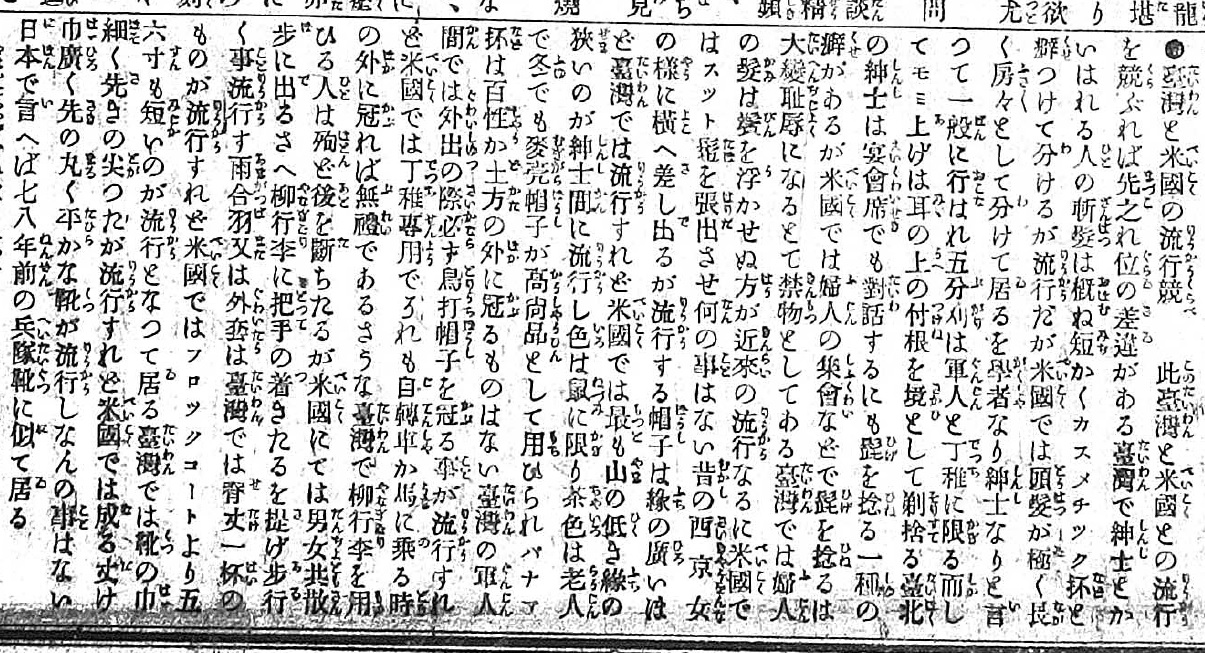 ●臺灣と米國の流行競　此臺灣と米國との流行
を競ぶれば先之れ位の差違がある臺灣で紳士とか
いはれる人の斬髮は概ね短かくカスメチック抔と
癖つけて分けるが流行だが米國では頭髮が極く長
く房々として分けて居るを學者なり紳士なりと言
つて一般に行はれ五分刈は軍人と丁稚に限る而し
てモミ上げは耳の上の付根を境として剃捨る臺北
の紳士は宴會席でも對話するにも髭を捻る一種の
癖があるが米國では婦人の集會などで髭を捻るは
大變耻辱になるとて禁物としてある臺灣では婦人
の髮は鬢を浮かせぬ方が近來の流行なるに米國で
はスット髱を張出させ何の事はない昔の西京女
の樣に橫へ差し出るが流行する帽子は緣の廣いは
ど臺灣では流行すれど米國では最も山の低き緣の
狹いのが紳士間に流行し色は鼠に限り茶色は老人
で冬でも麥藁帽子が高尚品として用ひられパナマ
抔は百性か土方の外に冠るものはない臺灣の軍人
間では外出の際必ず鳥打帽子を冠る事が流行すれ
ど米國では丁稚專用でそれも自轉車か馬に乘る時
の外に冠れば無禮であるさうな臺灣で柳行李を用
ひる人は殆ど後を斷ちたるが米國にては男女共散
步に出るさへ柳行李に把手の着きたるを提げ步行
く事流行す雨合羽又は外套は臺灣では脊丈一杯の
ものが流行すれど米國ではフロックコートより五
六寸も短いのが流行となつて居る臺灣では靴の巾
細く先きの尖つたが流行すれど米國では成る丈け
巾廣く先の丸く平かな靴が流行しなんの事はない
日本で言へば七八年前の兵隊靴に似て居る